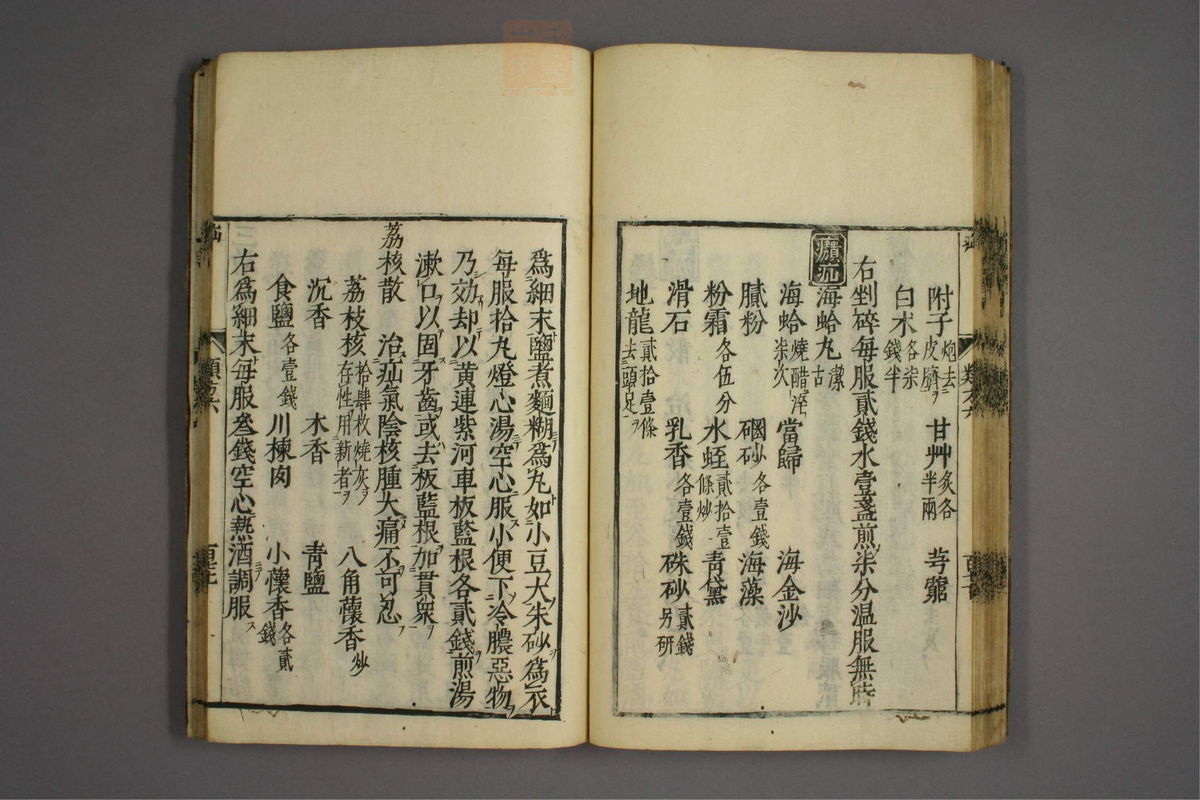 附子炮去皮臍 甘艸炙各半兩 芎藭
白朮各柒錢半
右剉碎每服貳錢水壹盞煎柒分温服無時
㿗疝 海蛤丸潔古
海蛤燒醋淬柒次 當歸 海金沙
膩粉 硇砂各壹錢 海藻
粉霜各伍分 水蛭貳拾壹條炒 青黛
滑石 乳香各壹錢 硃砂貳錢另研
地龍貳拾壹條去頭足
為細末鹽煮麵糊為丸如小豆大朱砂為衣
每服拾丸燈心湯空心服小便下冷膿惡物
乃効却以黄連紫河車板藍根各貳錢煎湯
漱口以固牙齒或去板藍根加貫衆
荔核散 治疝氣陰核腫大痛不可忍
荔枝核拾肆枚燒灰存性用新者 八角蘹香炒
沉香 木香 青鹽
食鹽各壹錢 川楝肉 小懷香各貳錢
右為細末每服叄錢空心熱酒調服